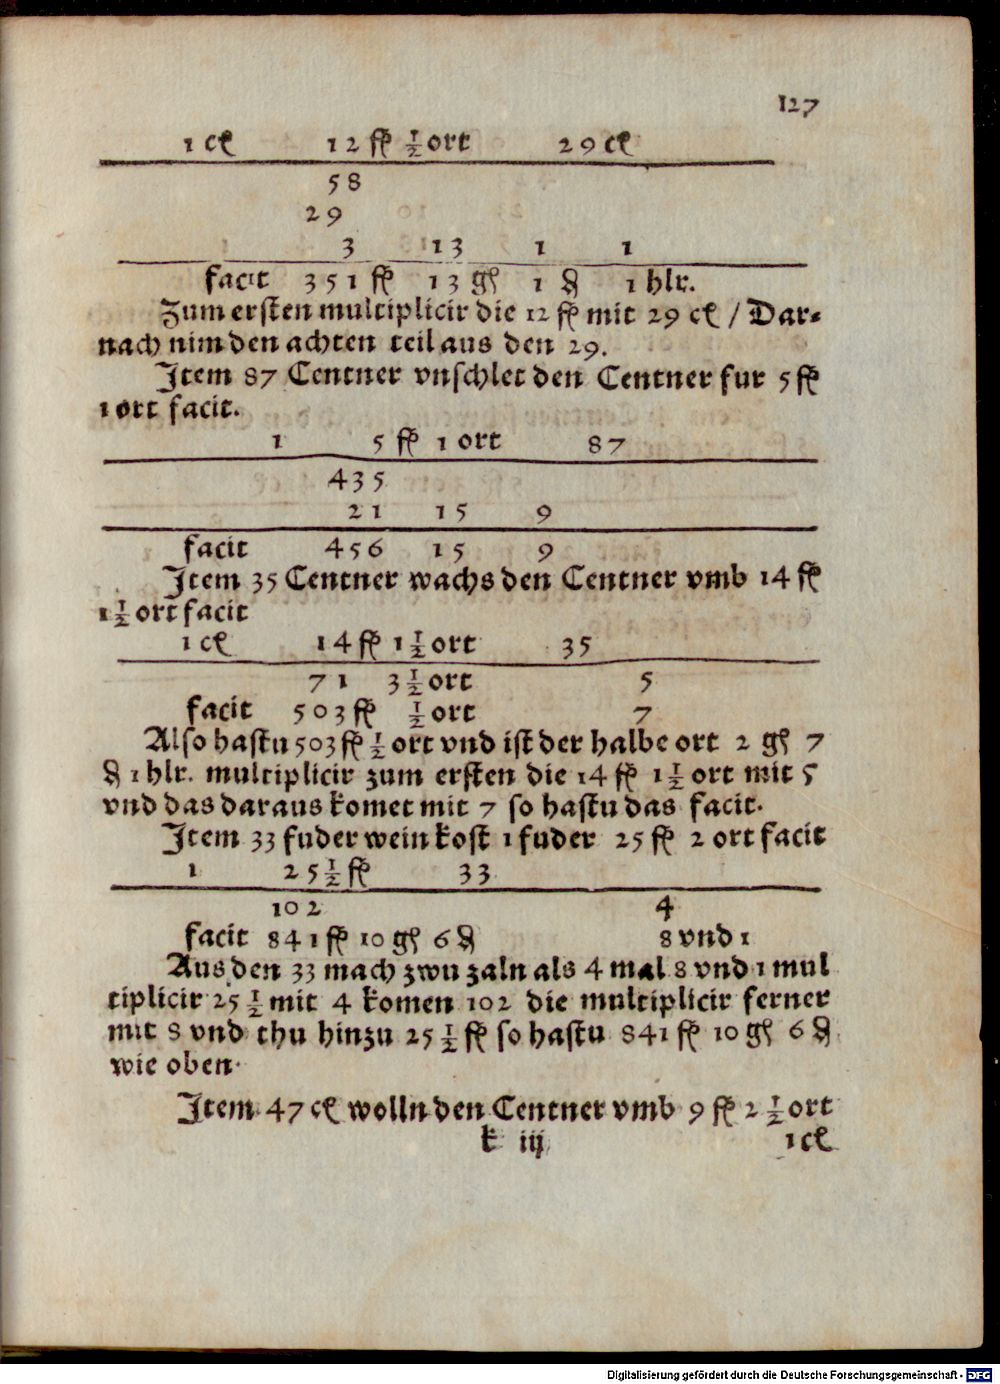 127
1 cł 12 fł ½ ort 29 cł
58
29
3 13 1 1
facit 351 fł 13 gł 1 ₰ 1 hlr.
Zum ersten multiplicir die 12 fł mit 29 cł / Dar-
nach nim den achten teil aus den 29.
Item 87 Centner vnschlet den Centner fur 5 fł
1 ort facit.
1 5 fł 1 ort 87
435
21 15 9
facit 456 15 9
Item 35 Centner wachs den Centner vmb 14 fł
1 ½ ort facit
1 cł 14 fł 1 ½ ort 35
71 3 ½ ort 5
facit 503 fł ½ ort 7
Also hastu 503 fł ½ ort vnd ist der halbe ort 2 gł 7
₰ 1 hlr. multiplicir zum ersten die 14 fł 1 ½ ort mit 5
vnd das daraus komet mit 7 so hastu das facit.
Item 33 fuder wein kost 1 fuder 25 fł 2 ort facit
1 25 ½ fł 33
102 4
facit 841 fł 10 gł 6 ₰ 8 vnd 1
Aus den 33 mach zwu zaln als 4 mal 8 vnd 1 mul
tiplicir 25 ½ mit 4 komen 102 die multiplicir ferner
mit 8 vnd thu hinzu 25 ½ fł so hastu 841 fł 10 gł 6 ₰
wie oben.
Item 47 cł wolln den Centner vmb 9 fł 2 ½ ort
k iij
1 cł
Digitalisierung gefördert durch die Deutsche Forschungsgemeinschaft - DFG